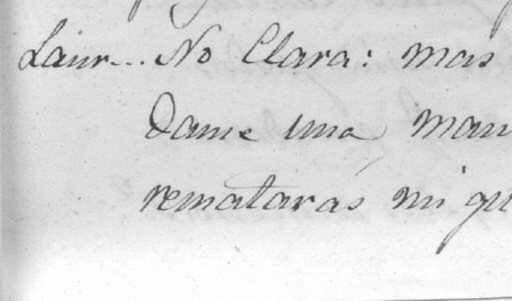 Laur... No Clara: mas
Dame una man
rematarás mi qu